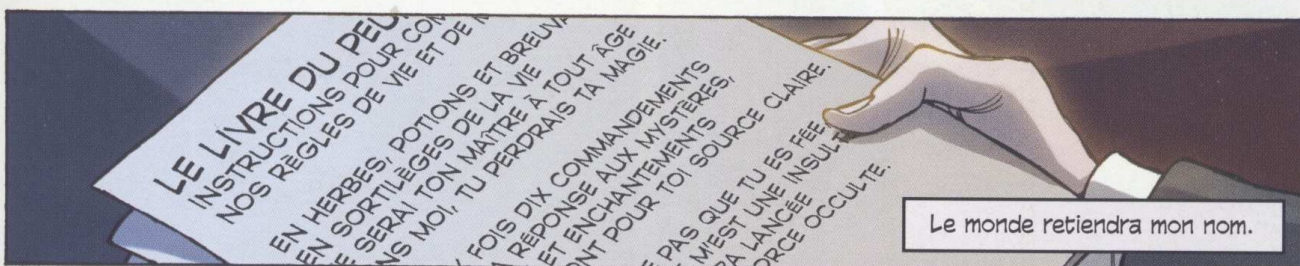 LE LIVRE DU
INSTRUCTIONS POUR
NOS RÈGLES DE VIE ET DE
EN HERBES, POTIONS ET
EN SORTILÈGES DE LA VIE
SERAI TON MAÎTRE À TOUT ÂGE
MOI, TU PERDRAIS TA MAGIE.
FOIS DIX COMMANDEMENTS
RÉPONSE AUX MYSTÈRES,
ET ENCHANTEMENTS
POUR TOI SOURCE CLAIRE.
PAS QUE TU ES FÉE
M'EST UNE
LANCÉE
OCCULTE.
Le monde retiendra mon nom.